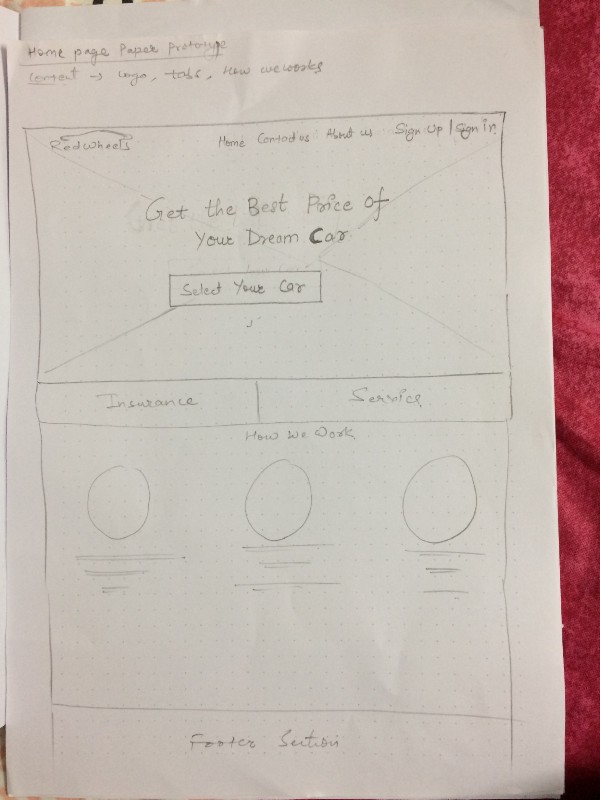 Home page Paper Prototype
Content → Logo, tabs, How we works
Redwheels
Home Contact us About us Sign Up | Sign in
Get the Best Price of
Your Dream Car
Select Your Car
Insurance Service
How We Work
Footer Section